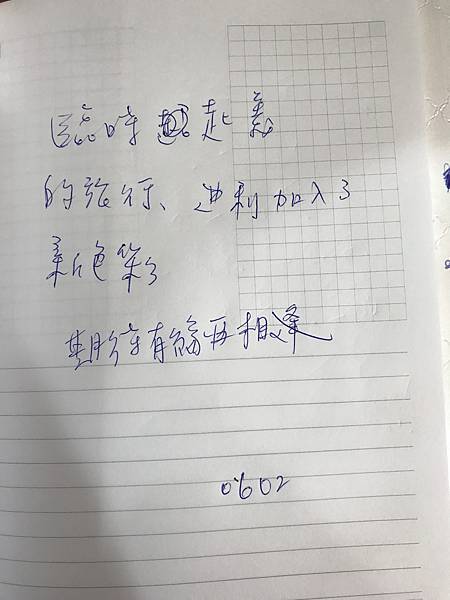 臨時起義
的旅行、迪利加入了
新色彩
期待有緣再相逢
0602